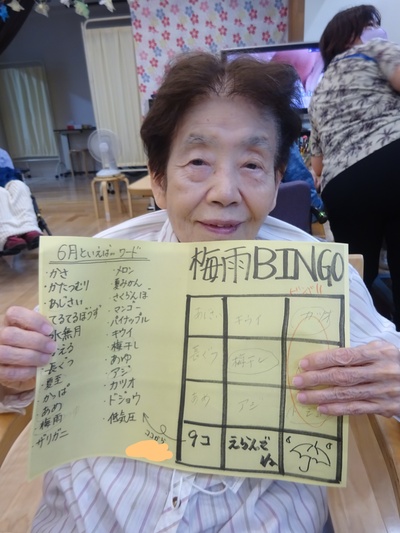 6月といえば ワード
・かさ
・かたつむり
・あじさい
・てるてるぼうず
・水無月
・かえる
・長ぐつ
・蛍
・かっぱ
・あめ
・梅雨
・ザリガニ
・メロン
・夏みかん
・さくらんぼ
・マンゴー
・パイナップル
・キウイ
・梅干し
・あゆ
・アジ
・カツオ
・ドジョウ
・低気圧
ココから
梅雨BINGO
あじさい キウイ
長ぐつ 梅干し
あめ アジ
9コ えらんでね